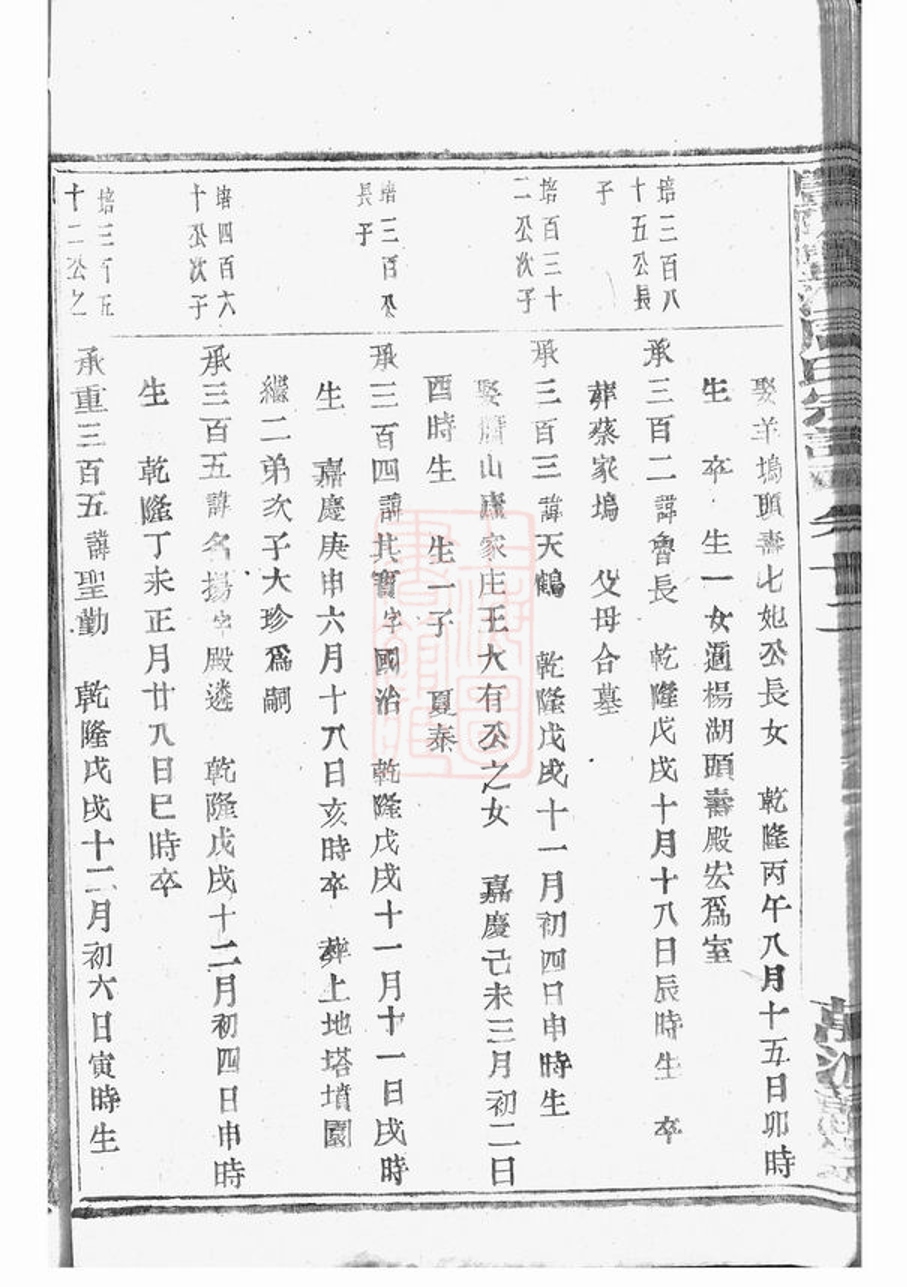 娶羊塢頭壽七妣公長女　乾隆丙午八月十五日卯時
生　卒　生一女適楊湖頭壽殿宏爲室
培三百八
十五公長
子
承三百二諱魯長　乾隆戊戌十月十八日辰時生　卒
葬蔡家塢　父母合墓
培百三十
二公次子
承三百三諱天鶴　乾隆戊戌十一月初四日申時生
娶 山 家庄王大有公之女　嘉慶己未三月初二日
酉時生　生一子　夏泰
培三百公
長子
承三百四諱其寶字國治　乾隆戊戌十一月十一日戌時
生　嘉慶庚申六月十八日亥時卒　葬上地塔墳園
繼二弟次子大珍爲嗣
培四百六
十公次子
承三百五諱名揚字殿遴　乾隆戊戌十二月初四日申時
生　乾隆丁未正月廿八日巳時卒
培三百五
十二公之
承重三百五諱聖勤　乾隆戊戌十二月初六日寅時生